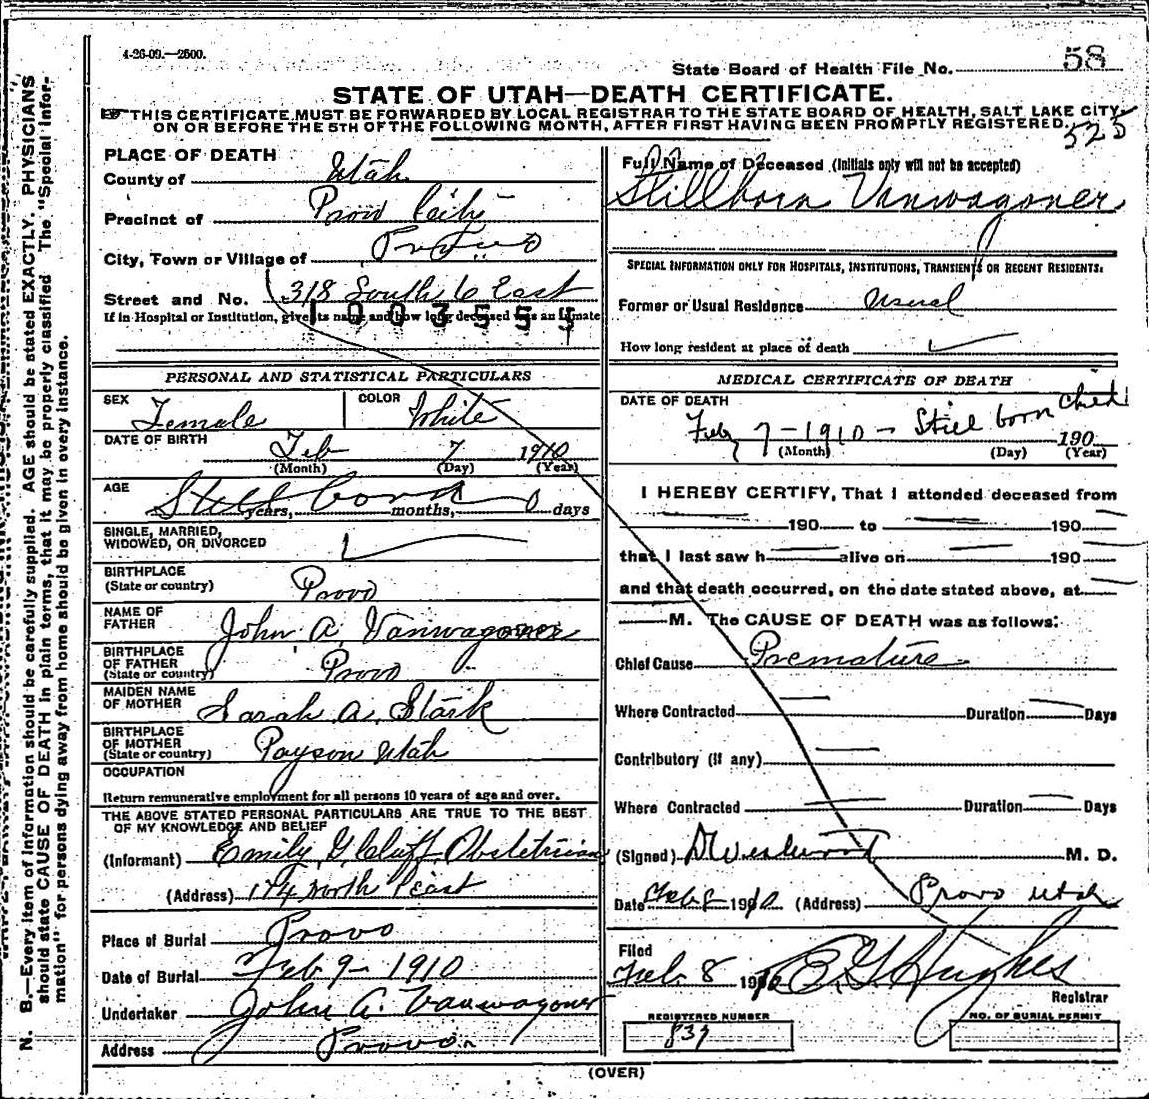 4-26-09.—2500.
58
State Board of Health File No.
STATE OF UTAH—DEATH CERTIFICATE.
THIS CERTIFICATE MUST BE FORWARDED BY LOCAL REGISTRAR TO THE STATE BOARD OF HEALTH, SALT LAKE CITY,
ON OR BEFORE THE 5TH OF THE FOLLOWING MONTH, AFTER FIRST HAVING BEEN PROMPTLY REGISTERED.
525
PLACE OF DEATH
County of Utah
Precinct of Provo City
City, Town or Village of Provo
Street and No. 318 South 6 East
If in Hospital or Institution, give its name and how long deceased was an inmate
1003555
Full Name of Deceased (Initials only will not be accepted)
Stillborn Vanwagoner
SPECIAL INFORMATION ONLY FOR HOSPITALS, INSTITUTIONS, TRANSIENTS OR RECENT RESIDENTS.
Former or Usual Residence Usual
How long resident at place of death
PERSONAL AND STATISTICAL PARTICULARS
SEX Female
COLOR White
DATE OF BIRTH Feb 7 1910
(Month) (Day) (Year)
AGE Still born 0
years, months, days
SINGLE, MARRIED,
WIDOWED, OR DIVORCED
BIRTHPLACE
(State or country) Provo
NAME OF
FATHER John A. Vanwagoner
BIRTHPLACE
OF FATHER
(State or country) Provo
MAIDEN NAME
OF MOTHER Sarah A. Stark
BIRTHPLACE
OF MOTHER
(State or country) Payson Utah
OCCUPATION
Return remunerative employment for all persons 10 years of age and over.
THE ABOVE STATED PERSONAL PARTICULARS ARE TRUE TO THE BEST
OF MY KNOWLEDGE AND BELIEF
(Informant) Emily G. Cluff Obstetrician
(Address) North East
Place of Burial Provo
Date of Burial Feb 9 - 1910
Undertaker John A. Vanwagoner
Address Provo
MEDICAL CERTIFICATE OF DEATH
DATE OF DEATH
Feb 7 - 1910 - Still born child
190
(Month) (Day) (Year)
I HEREBY CERTIFY, That I attended deceased from
190 to 190
that I last saw h alive on 190
and that death occurred, on the date stated above, at
M. The CAUSE OF DEATH was as follows:
Chief Cause Premature
Where Contracted Duration Days
Contributory (if any)
Where Contracted Duration Days
(Signed) D Westwood M. D.
Date Feb 8 1910 (Address) Provo Utah
Filed
Feb. 8 1910 E. G. Hughes
Registrar
REGISTERED NUMBER
839
NO. OF BURIAL PERMIT
(OVER)
N. B.—Every item of information should be carefully supplied. AGE should be stated EXACTLY. PHYSICIANS
should state CAUSE OF DEATH in plain terms, that it may be properly classified. The "Special Infor-
mation" for persons dying away from home should be given in every instance.